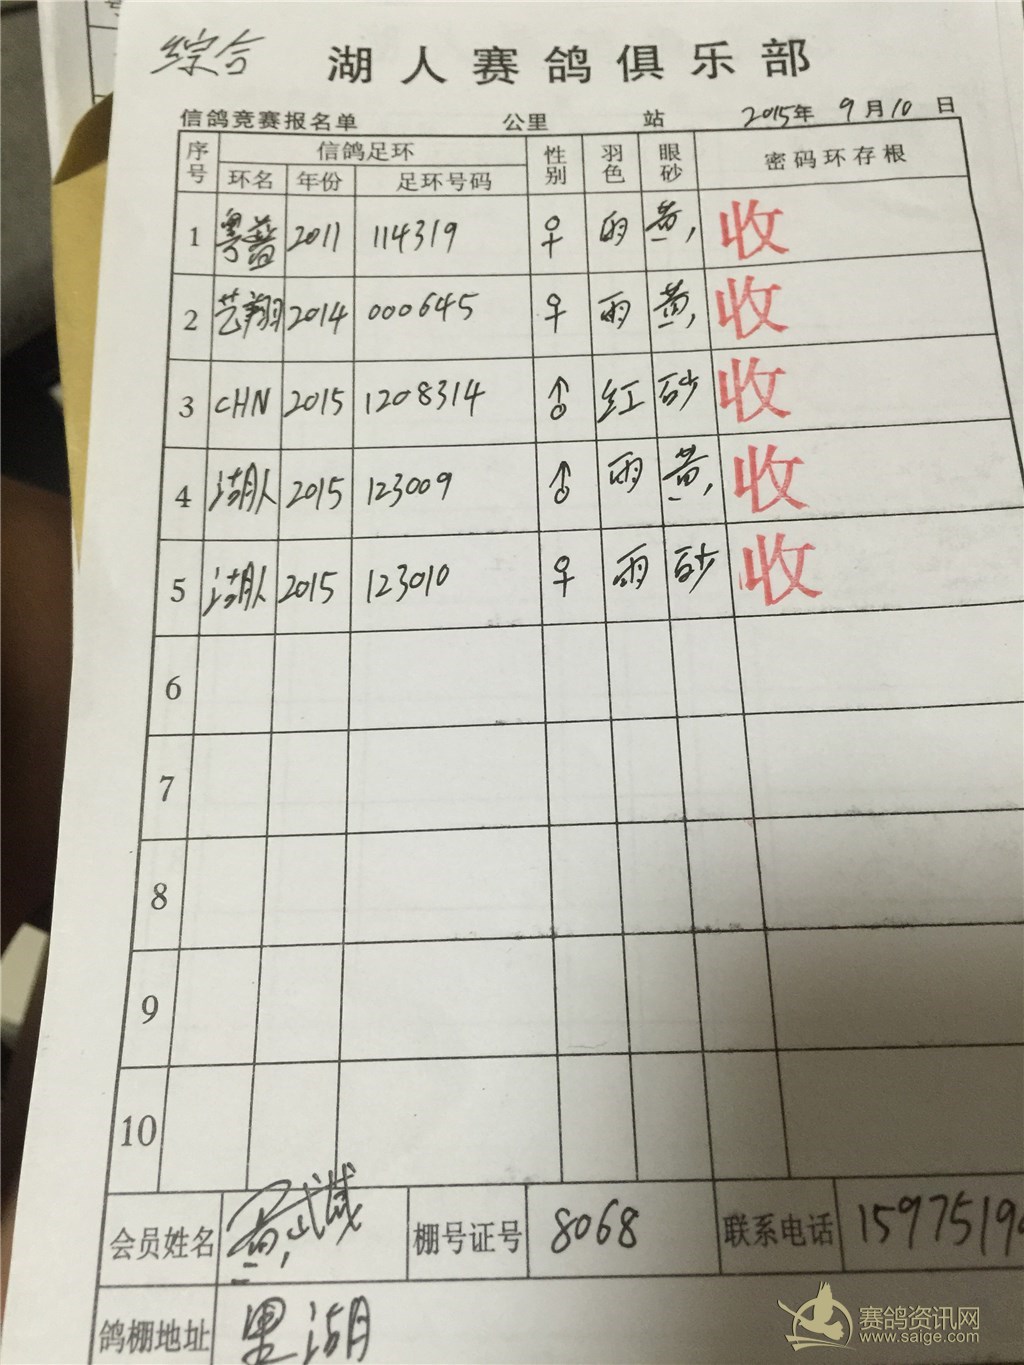 综合
湖人赛鸽俱乐部
信鸽竞赛报名单 公里 站 2015年 9月10日
序号 信鸽足环 性别 羽色 眼砂 密码环存根
环名 年份 足环号码
1 粤 2011 114319 ♀ 雨 黄 收
2 艺翔 2014 000645 ♀ 雨 黄 收
3 CHN 2015 1208314 ♂ 红 砂 收
4 湖人 2015 123009 ♂ 雨 黄 收
5 湖人 2015 123010 ♀ 雨 砂 收
6
7
8
9
10
会员姓名 黄武 棚号证号 8068 联系电话 15975194
鸽棚地址 里湖
赛鸽资讯网
www.saige.com